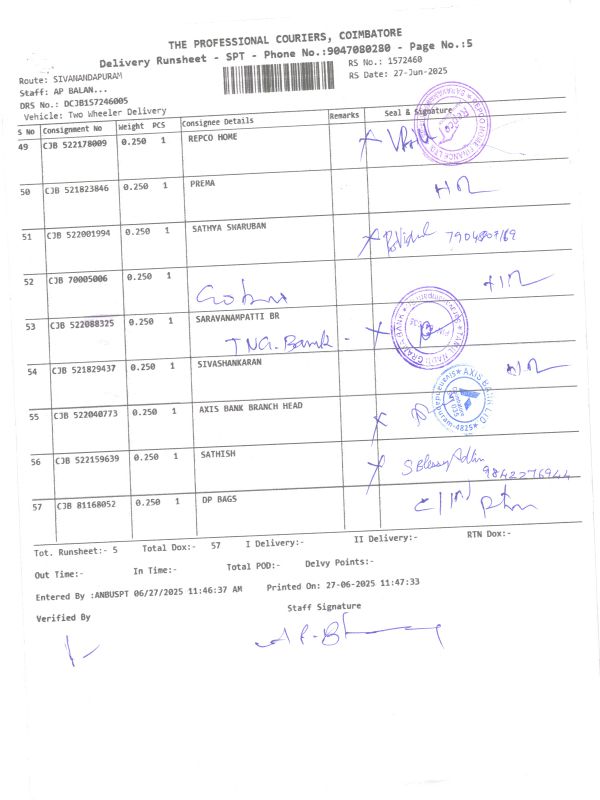 THE PROFESSIONAL COURIERS, COIMBATORE
Delivery Runsheet - SPT - Phone No.:9047080280 - Page No.:5
Route: SIVANANDAPURAM
RS No.: 1572460
Staff: AP BALAN...
RS Date: 27-Jun-2025
DRS No.: DCJB157246005
Vehicle: Two Wheeler Delivery
S No Consignment No Weight PCS Consignee Details Remarks Seal & Signature
49 CJB 522178009 0.250 1 REPCO HOME
50 CJB 521823846 0.250 1 PREMA
51 CJB 522001994 0.250 1 SATHYA SHARUBAN
52 CJB 70005006 0.250 1
53 CJB 522088325 0.250 1 SARAVANAMPATTI BR
TNG. Bank -
54 CJB 521829437 0.250 1 SIVASHANKARAN
55 CJB 522040773 0.250 1 AXIS BANK BRANCH HEAD
AXIS BANK LTD
56 CJB 522159639 0.250 1 SATHISH
9842276944
57 CJB 81168052 0.250 1 DP BAGS
Tot. Runsheet:- 5 Total Dox:- 57 I Delivery:- II Delivery:- RTN Dox:-
Out Time:- In Time:- Total POD:- Delvy Points:-
Entered By :ANBUSPT 06/27/2025 11:46:37 AM Printed On: 27-06-2025 11:47:33
Verified By Staff Signature